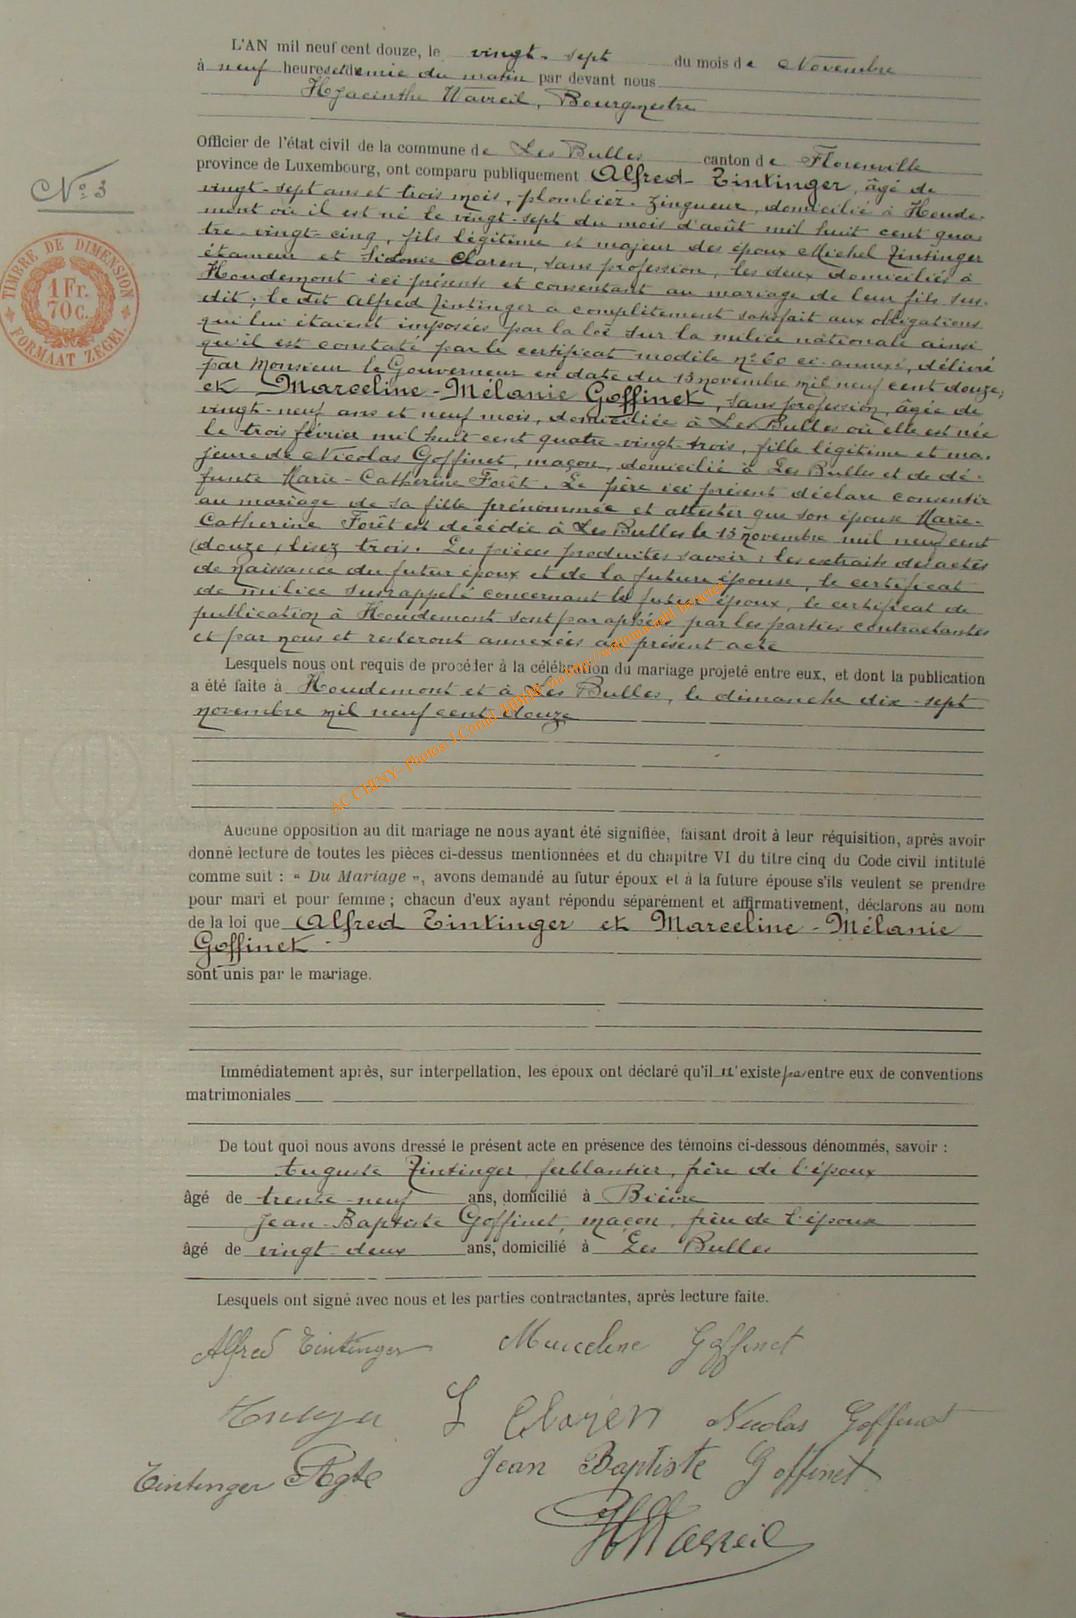 L'AN mil neuf cent douze, le vingt-sept du mois de Novembre
à neuf heures et demie du matin par devant nous
Hyacinthe Wavreil, Bourgmestre
Officier de l'état civil de la commune de Les Bulles canton de Florenville
province de Luxembourg, ont comparu publiquement Alfred Tintinger, âgé de
N° 3
vingt-sept ans et trois mois, plombier-zingueur, domicilié à Houde-
mont où il est né le vingt-sept du mois d'août mil huit cent qua-
tre-vingt-cinq, fils légitime et majeur des époux Michel Tintinger
étameur et Sidonie Claren, sans profession, les deux domiciliés à
TIMBRE DE DIMENSION
1 Fr.
70 c.
FORMAAT ZEGEL
Houdemont ici présents et consentant au mariage de leur fils sus-
dit; le dit Alfred Tintinger a complètement satisfait aux obligations
qui lui étaient imposées par la loi sur la milice nationale ainsi
qu'il est constaté par le certificat modèle n° 60 ci-annexé, délivré
par Monsieur le Gouverneur en date du 13 novembre mil neuf cent douze,
et Marceline-Mélanie Goffinet, sans profession, âgée de
vingt-neuf ans et neuf mois, domiciliée à Les Bulles où elle est née
le trois février mil huit cent quatre-vingt-trois, fille légitime et ma-
jeure de Nicolas Goffinet, maçon, domicilié à Les Bulles et de dé-
funte Marie-Catherine Forêt. Le père ici présent déclare consentir
au mariage de sa fille prénommée et attester que son épouse Marie-
Catherine Forêt est décédée à Les Bulles le 13 novembre mil neuf cent
(douze) lisez trois. Les pièces produites savoir: les extraits des actes
de naissance du futur époux et de la future épouse, le certificat
de milice susrappelé concernant le futur époux, le certificat de
publication à Houdemont sont paraphées par les parties contractantes
et par nous et resteront annexées au présent acte
Lesquels nous ont requis de procéder à la célébration du mariage projeté entre eux, et dont la publication
a été faite à Houdemont et à Les Bulles, le dimanche dix-sept
novembre mil neuf cent douze
AC CHINY - Photos J.Cornil
Aucune opposition au dit mariage ne nous ayant été signifiée, faisant droit à leur réquisition, après avoir
donné lecture de toutes les pièces ci-dessus mentionnées et du chapitre VI du titre cinq du Code civil intitulé
comme suit : « Du Mariage », avons demandé au futur époux et à la future épouse s'ils veulent se prendre
pour mari et pour femme ; chacun d'eux ayant répondu séparément et affirmativement, déclarons au nom
de la loi que Alfred Tintinger et Marceline-Mélanie
Goffinet
sont unis par le mariage.
Immédiatement après, sur interpellation, les époux ont déclaré qu'il n'existe pas entre eux de conventions
matrimoniales
De tout quoi nous avons dressé le présent acte en présence des témoins ci-dessous dénommés, savoir :
Auguste Tintinger, ferblantier, frère de l'époux
âgé de trente-neuf ans, domicilié à Bièvre
Jean-Baptiste Goffinet, maçon, frère de l'épouse
âgé de vingt deux ans, domicilié à Les Bulles
Lesquels ont signé avec nous et les parties contractantes, après lecture faite.
Alfred Tintinger Marceline Goffinet
S Claren Nicolas Goffinet
Tintinger Agte Jean Baptiste Goffinet
HWavreil